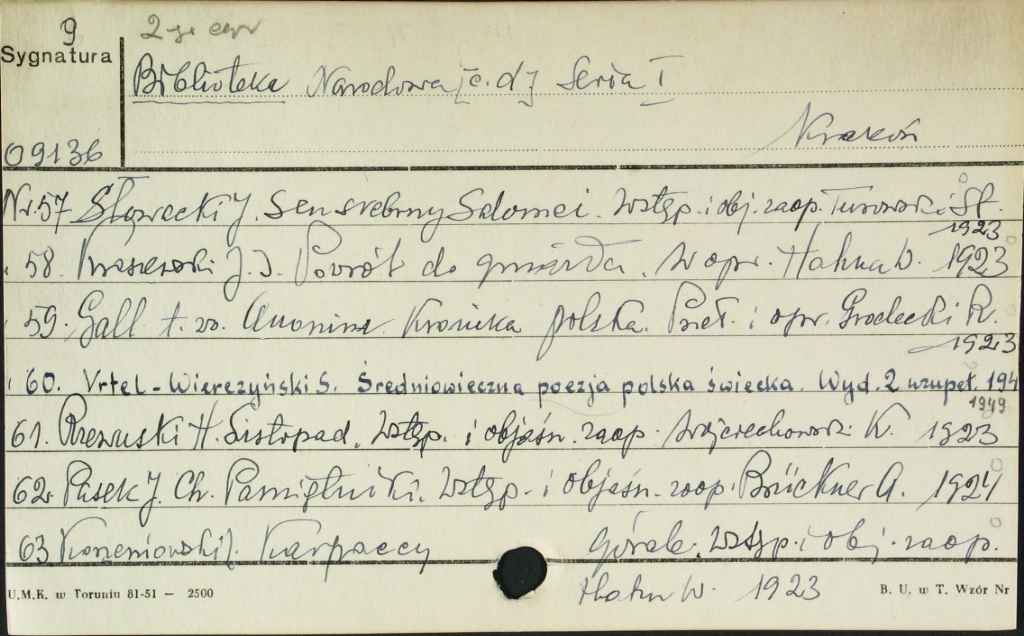 9 2-gi egz
Sygnatura
Biblioteka Narodowa [c.d] Seria I
Kraków
09136
Nr.57 Słowacki J. Sen srebrny Salomei. Wstęp. i obj. zaop. Turowski St.
1923
58. Kraszewski J. I. Powrót do gniazda. W opr. Hahna W. 1923
59. Gall t. zw. Anonim Kronika polska. Przeł. i opr. Grodecki R.
1923
60. Vrtel-Wierczyński S. Średniowieczna poezja polska świecka. Wyd. 2 uzupeł. 194
1949
61. Rzewuski H. Listopad. Wstęp. i objaśn. zaop. Wojciechowski K. 1923
62. Pasek J. Ch. Pamiętniki. Wstęp. i objaśn. zaop. Brückner A. 1924
63 Korzeniowski J. Karpaccy Górale. Wstęp. i obj. zaop.
Hahn W. 1923
U.M.K. w Toruniu 81-51 — 2500
B. U. w T. Wzór Nr